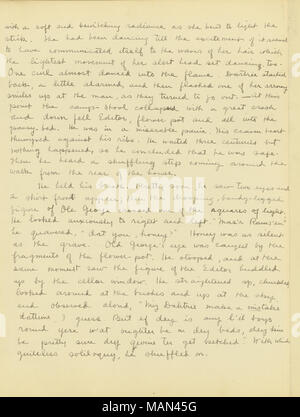 with a soft and bewitching radiance as she bent to light the
stick. She had been dancing till the excitement of it seemed
to have communicated itself to the waves of her hair which
the slightest movement of her alert head set dancing, too.
One curl almost danced into the flame. started
back, a little alarmed, and then flashed one of her arrowy
smiles up at the man, as they turned to go out. At this
point the camp-stool collapsed with a great crash
and down fell Editor, flower pot and all into the
pansy bed. He was in a miserable panic. His craven heart
thumped against his ribs. He waited three centuries but
nothing happened, so he concluded that he was safe.
Then he heard a shuffling step coming around the
walk from the rear of the house.
He held his breath. Pretty soon he saw two eyes and
a short front appear, then the stooping, bandy-legged
figure of Ole George crossed one of the squares of light.
He looked anxiously to right and left. "
he quavered, "dat you, honey?" Honey was as silent
as the grave. Old George's eye was caught by the
fragments of the flower-pot. He stooped, and at the
same moment saw the figure of the Editor huddled
up by the cellar window. He straightened up, chuckled
looked around at the bushes and up at the sky
and observed aloud, "My Dahlias make a mistake
dattime I guess. But ef dey is any li'l boys
round yere wat oughter be in dey beds, dey
be pretty sure dey gwine ter get ketched." With which
guileless soliloquy, he shuffled on.
alamy
alamy
Image ID: MAN45G
www.alamy.com